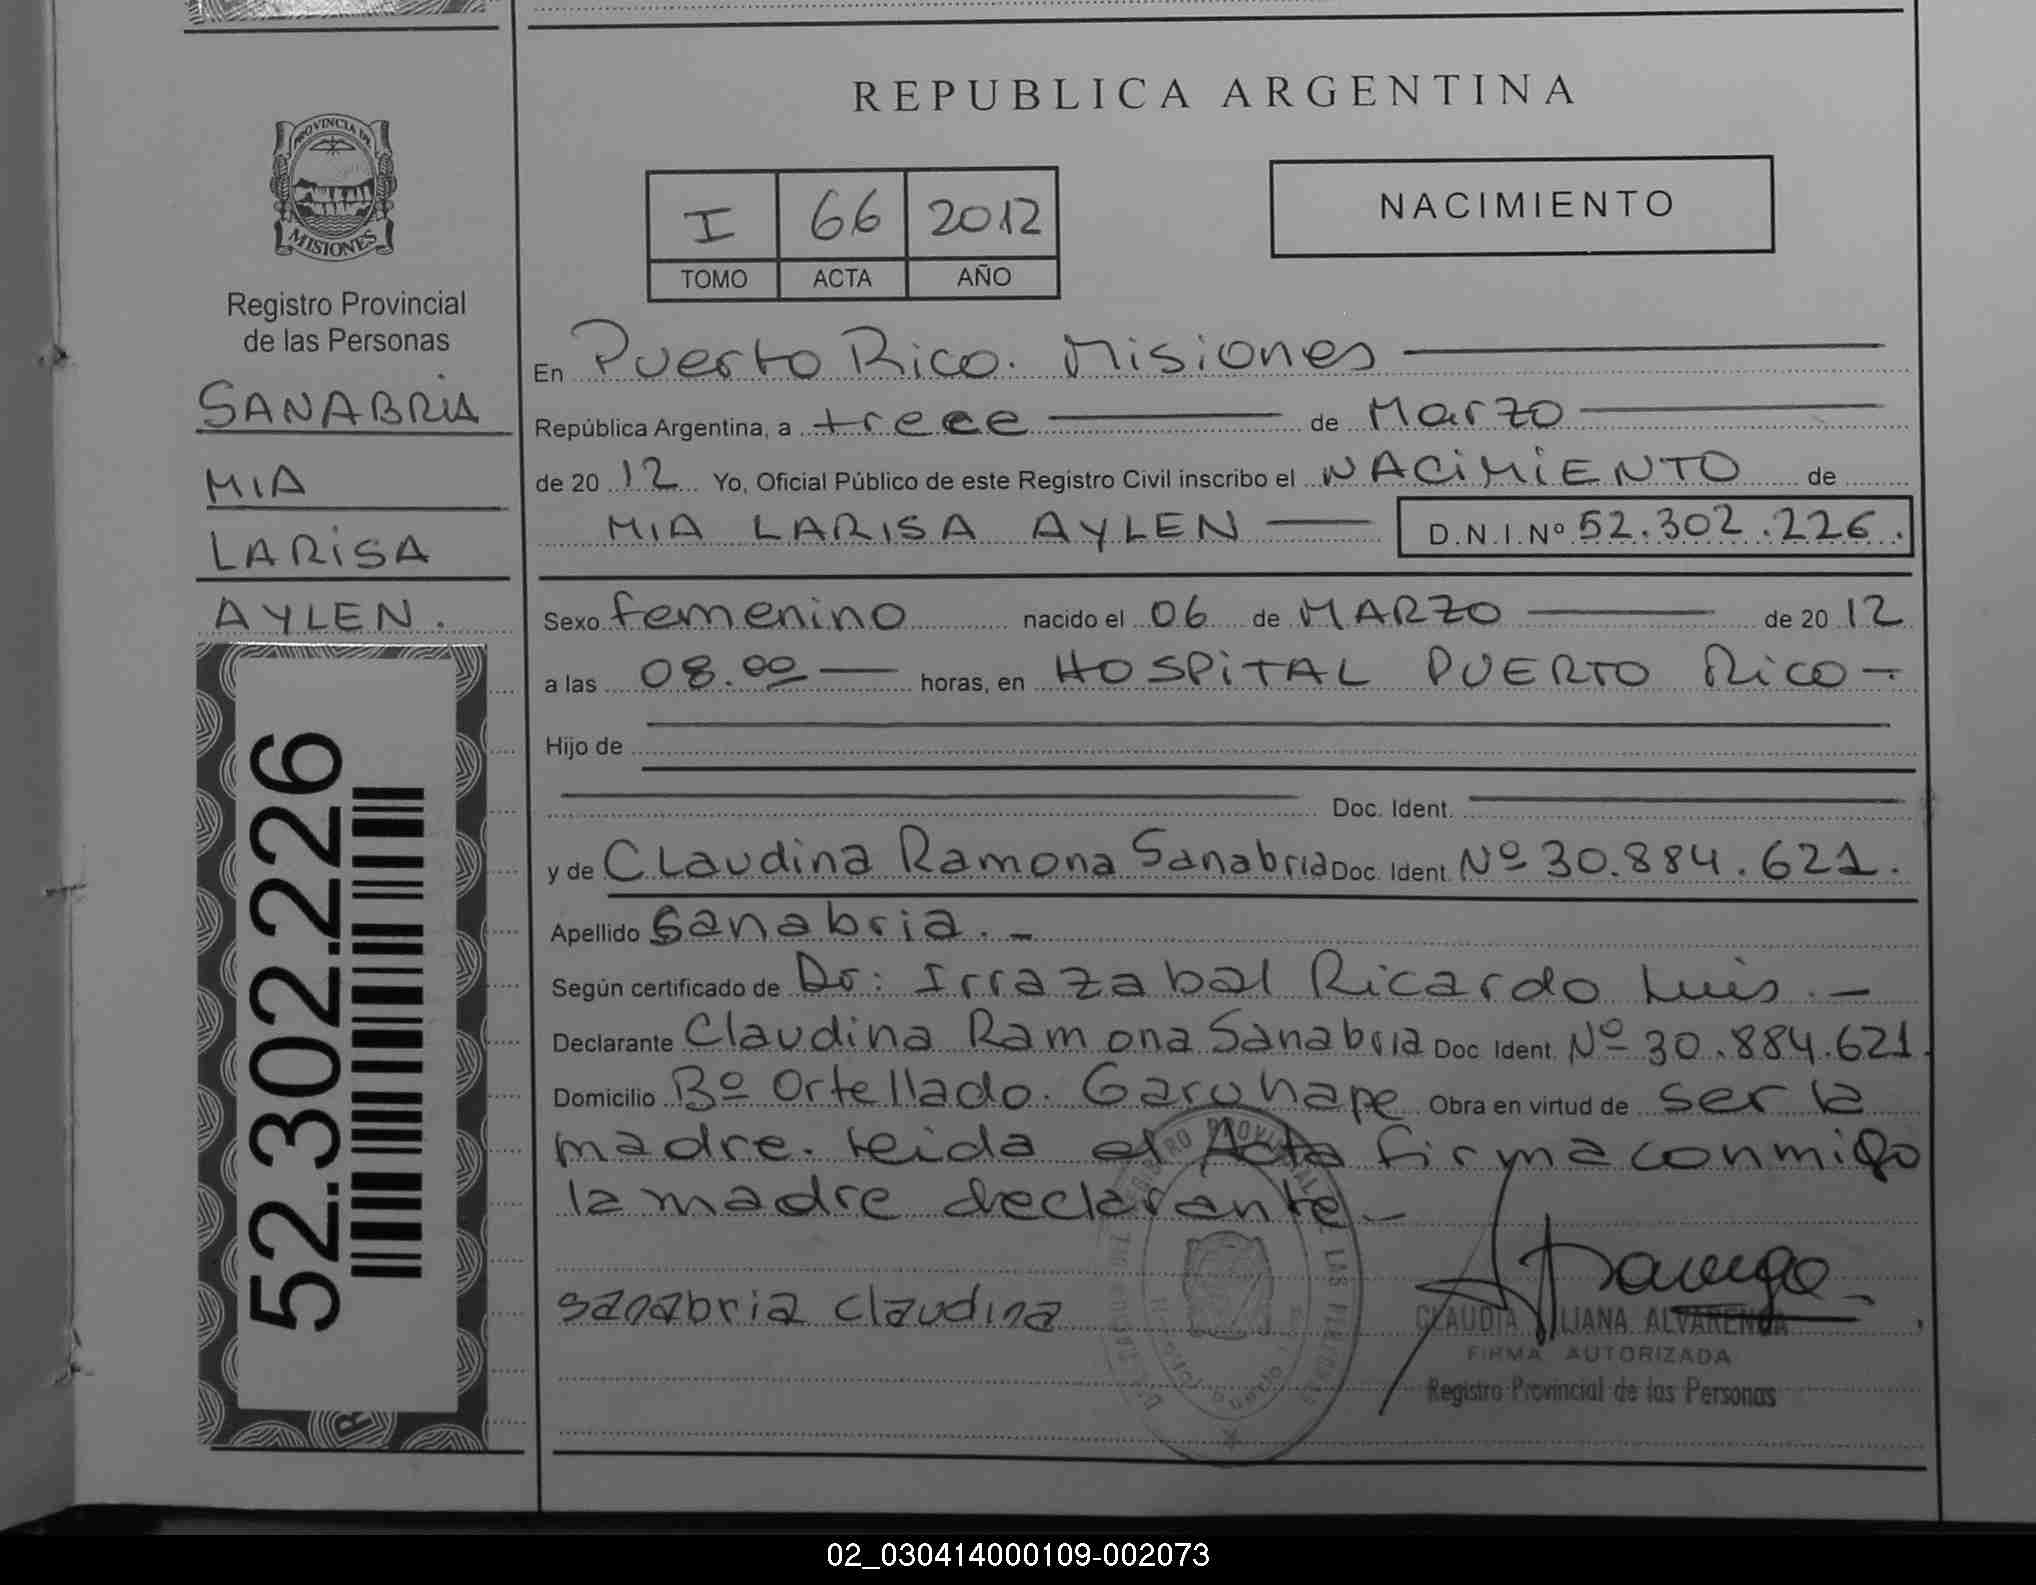 PROVINCIA DE
MISIONES
Registro Provincial
de las Personas
SANABRIA
MIA
LARISA
AYLEN.
52.302.226
REPUBLICA ARGENTINA
I 66 2012
TOMO ACTA AÑO
NACIMIENTO
En Puerto Rico. Misiones
República Argentina, a trece de Marzo
de 2012 Yo, Oficial Público de este Registro Civil inscribo el NACIMIENTO de
MIA LARISA AYLEN D.N.I.Nº 52.302.226.
Sexo femenino nacido el 06 de MARZO de 2012
a las 08.00 horas, en HOSPITAL PUERTO RICO-
Hijo de
Doc. Ident.
y de Claudina Ramona Sanabria Doc. Ident. Nº 30.884.621.
Apellido Sanabria.-
Según certificado de Dr: Irrazabal Ricardo Luis.-
Declarante Claudina Ramona Sanabria Doc. Ident. Nº 30.884.621.
Domicilio Bº Ortellado. Garuhape Obra en virtud de ser la
madre. Leida el Acta firma conmigo
la madre declarante-
sanabria claudina
CLAUDIA LILIANA ALVARENGA
FIRMA AUTORIZADA
Registro Provincial de las Personas
02_030414000109-002073